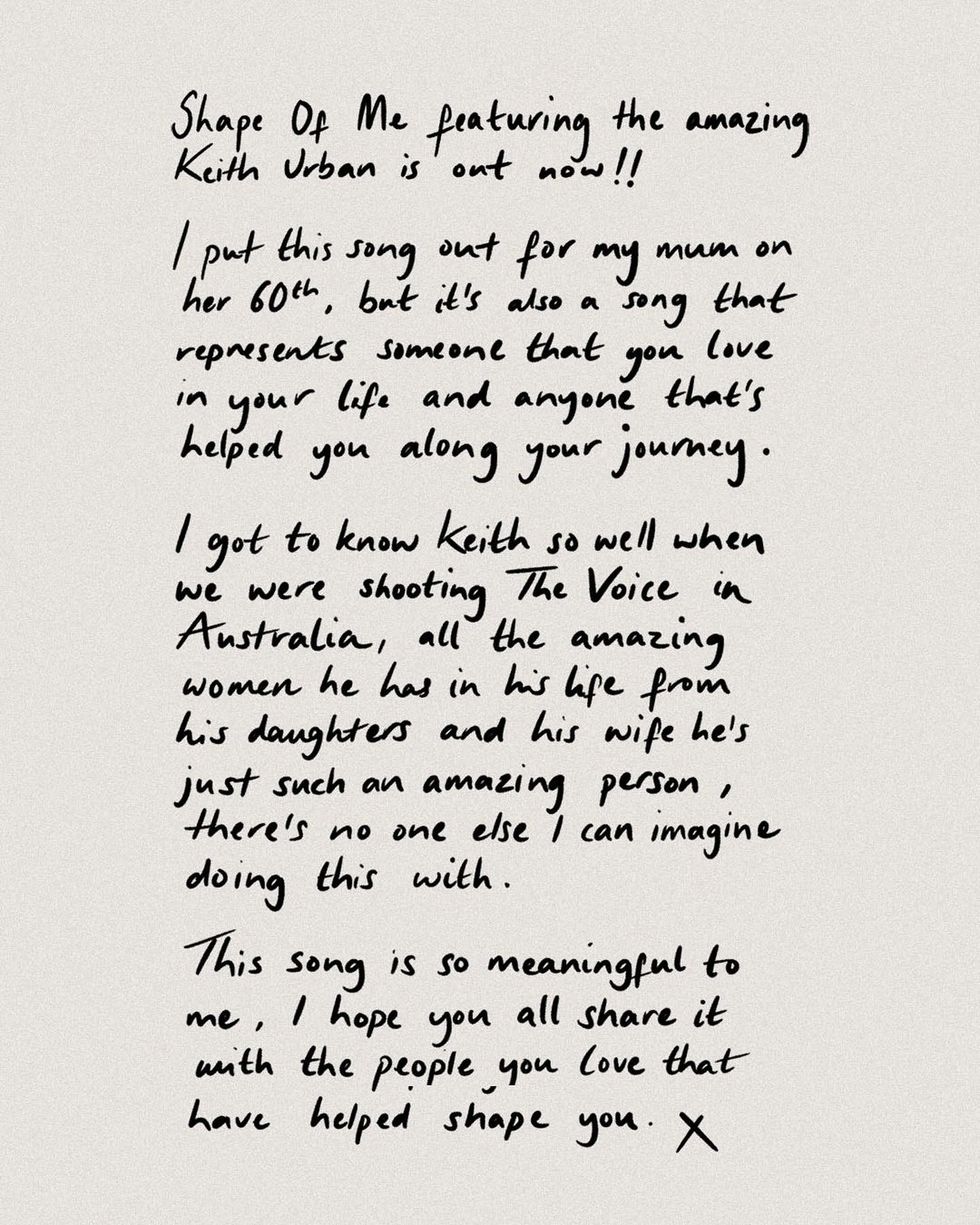 Shape Of Me featuring the amazing
Keith Urban is out now!!
I put this song out for my mum on
her 60th, but it's also a song that
represents someone that you love
in your life and anyone that's
helped you along your journey.
I got to know Keith so well when
we were shooting The Voice in
Australia, all the amazing
women he has in his life from
his daughters and his wife he's
just such an amazing person,
there's no one else I can imagine
doing this with.
This song is so meaningful to
me, I hope you all share it
with the people you love that
have helped shape you. X